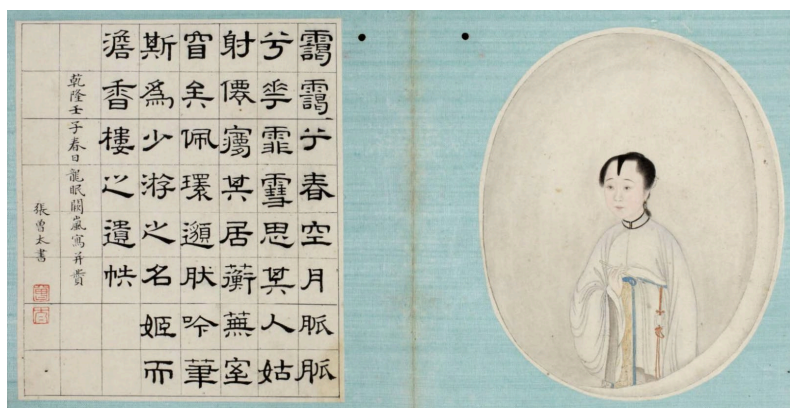 靄靄兮春空月脈脈
兮華霏雪思其人姑
射僊其居蘅蕪室
窅矣佩環邈肰吟筆
斯爲少游之名姬而
澹香樓之遺帙
乾隆壬子春日龍眠闕嵐寫并贊
張曾太書